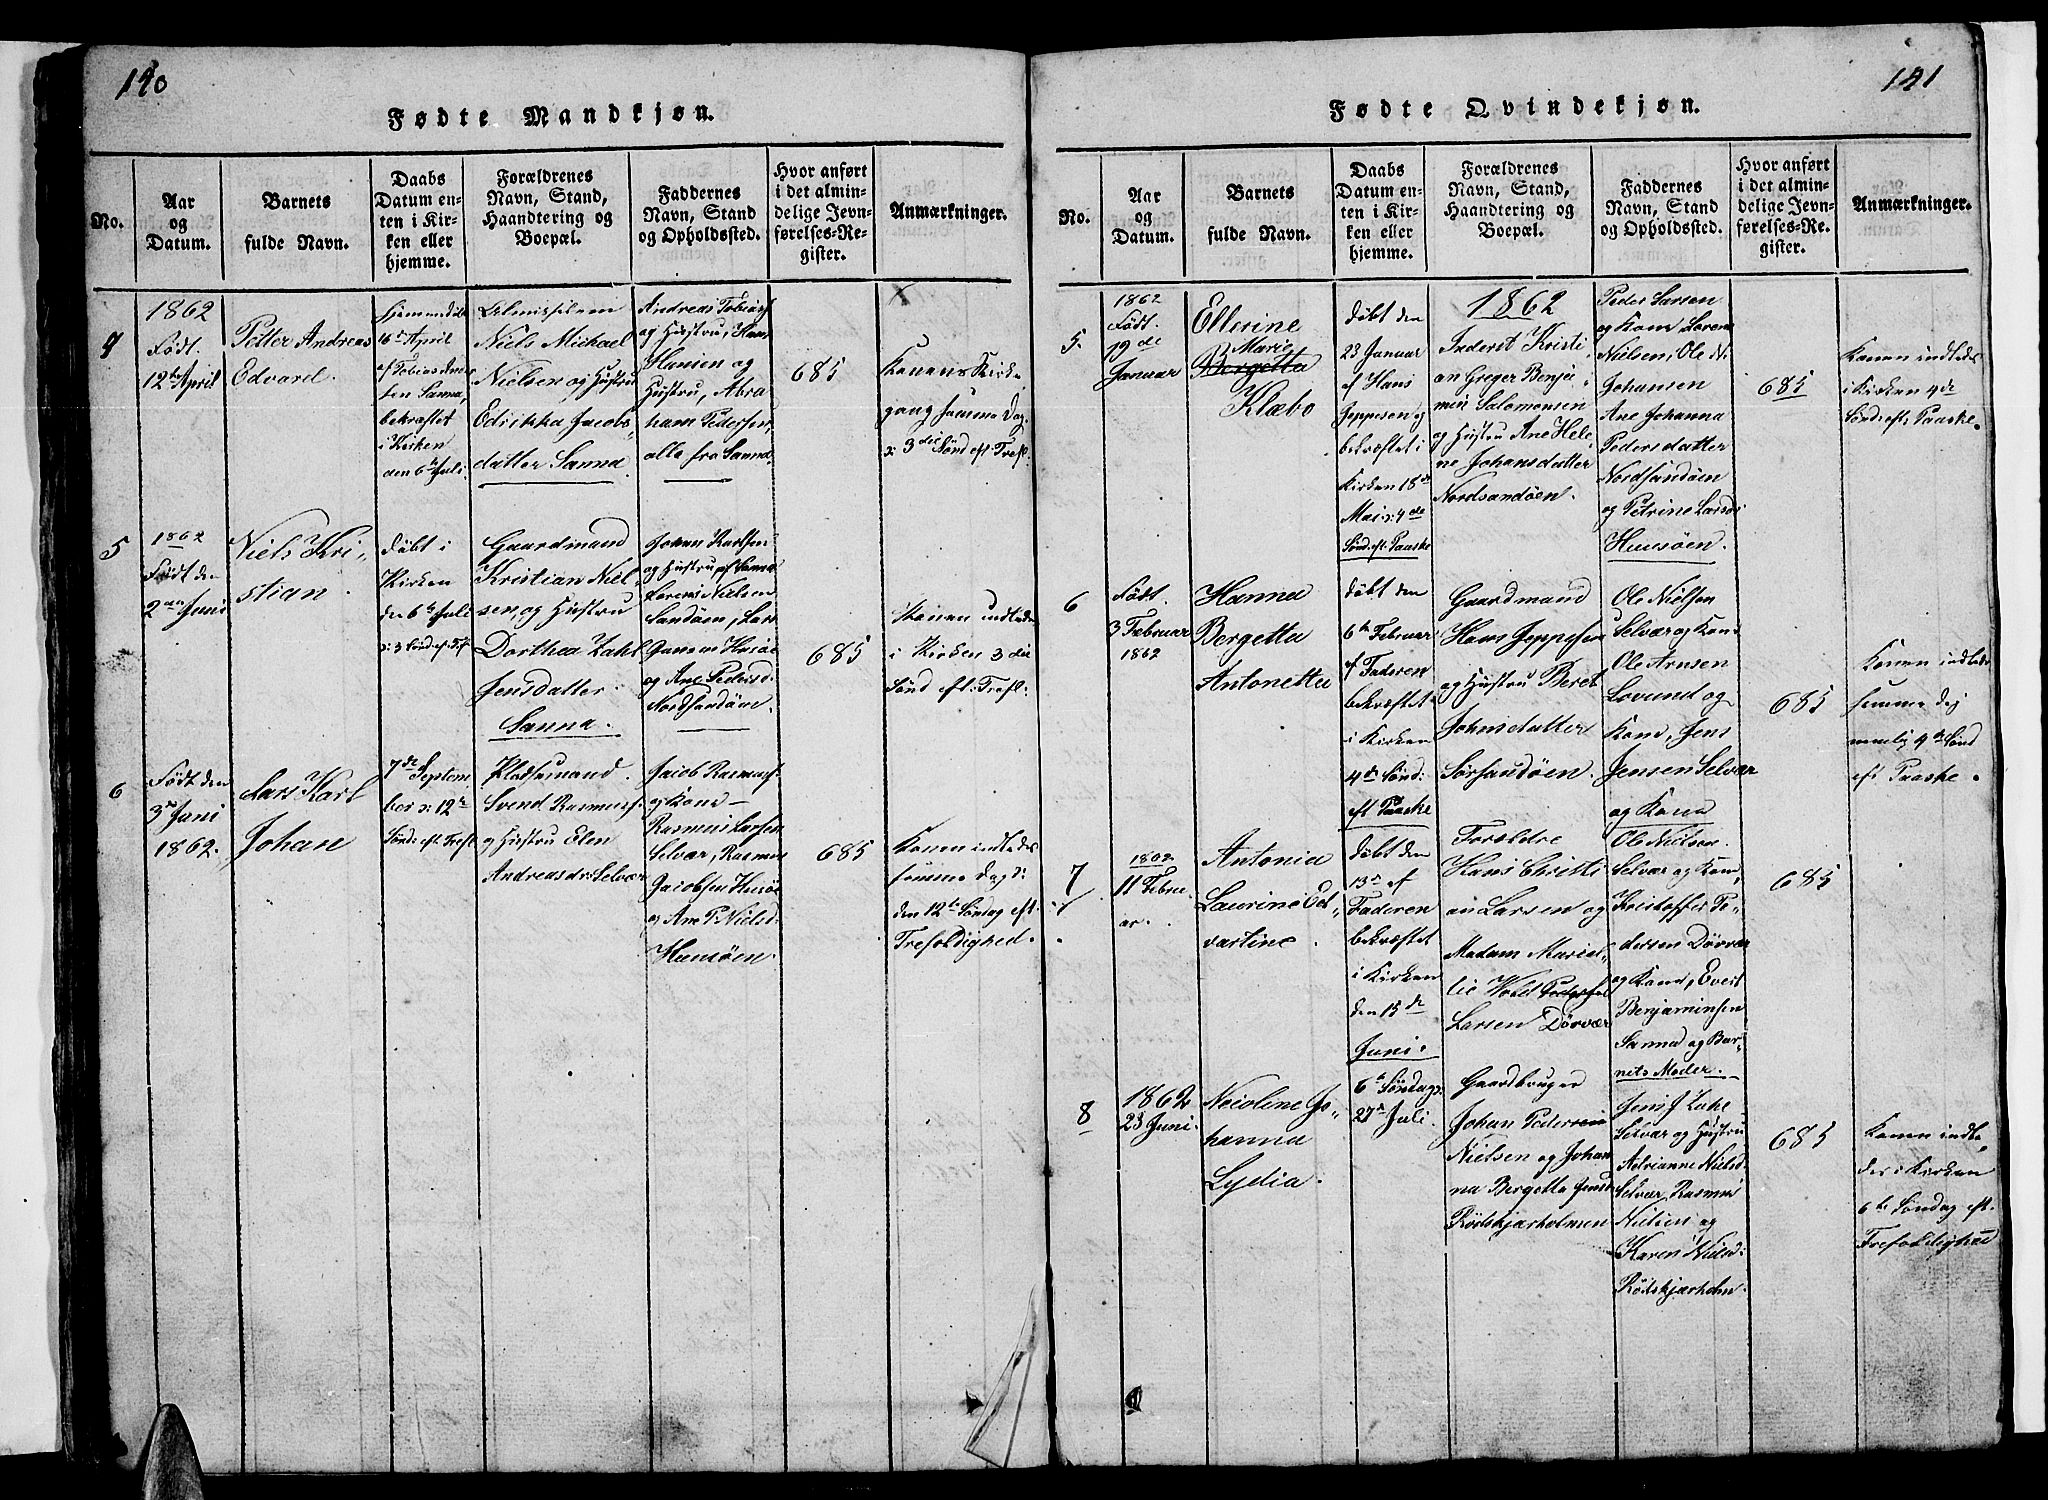 140
Fødte Mandkjøn.
No.
Aar
og
Datum.
Barnets
fulde Navn.
Daabs
Datum en-
ten i Kir-
ken eller
hjemme.
Forældrenes
Navn, Stand,
Haandtering og
Boepæl.
Faddernes
Navn, Stand
og Opholdssted.
Hvor anført
i det almin-
delige Jevn-
førelses-Re-
gister.
Anmærkninger.
4
1862
Født.
12te April
Petter Andreas
Edvard.
Hjemmedøbt
16de April
af Tobias Andre
sen Sanna,
bekræftet
i Kirken
den 6te Juli.
Niels Michael
Nielsen og Hustru
Edrikka Jacobs-
datter Sanna
Andreas Tobiass
og Hustru, Hans
Hansen og
Hustru, Abra
ham Pederssen,
alle fra Sanna.
685
Konens Kirke
gang samme Dag
3die Sønd eft Tref.
5
1862
Født den
2den Juni
Niels Kri-
stian.
døbt i
Kirken
den 6te Juli
3 Sønd eft Tref
Gaardmand
Kristian Niel-
sen, og Hustru
Dorthea Zahl
Jensdatter.
Sanna.
Johan Karlsen
og Hustru af Sanna
Lorens Nielsen
Sandøen, Lars
Husøe
og Ane Pedersd:
Nordsandøen.
685
Konen indledes
i Kirken 3die
Sønd eft: Tref:
6
Født den
3de Juni
1862.
Lars Karl
Johan
7de Septem
ber 12te
Sønd: eft Tref
Pladsemand.
Svend Rasmuss:
og Hustru Elen
Andreasdr Selvær
Jacob Rasmuss:
og Kone
Rasmus Larsen
Selvær, Rasmus
Jacobsen Husøe
og Ane P. Nielsd:
Huusøen.
685
Konen indledes
samme Dag:
den 12te Søndag eft.
Trefoldighed.
141
Fødte Qvindekjøn.
No.
Aar
og
Datum.
Barnets
fulde Navn.
Daabs
Datum en-
ten i Kir-
ken eller
hjemme.
Forældrenes
Navn, Stand,
Haandtering og
Boepæl.
Faddernes
Navn, Stand
og Opholdssted.
Hvor anført
i det almin-
delige Jevn-
førelses-Re-
gister.
Anmærkninger.
5
1862
Født.
19de
Januar
Ellerine
Marie
Bergetta
Klæbo
døbt den
23 Januar
af Hans
Jeppesen og
bekræftet i
Kirken 18de
Mai 4de
Sønd eft Paaske
1862
Inderst Kristi
an Greger Benja
min Salomonsen
og Hustru Ane Hele
ne Johansdatter
Nordsandøen.
Peder Larsen
og Kone, Lorens
Nielsen, Ole N.
Johansen
Ane Johanna
Pedersdatter
Nordsandøen
og Petrine Larsdr
Huusøen.
685
Konen indledes
i Kirken 4de
Sønd eft Paaske.
6
Født.
3 Februar
1862
Hanna
Bergetta
Antonetta
døbt den
6te Februar
af Faderen
bekræftet
i Kirken
4de Sønd:
eft Paaske
Gaardmand
Hans Jeppesen
og Hustru Beret
Johnsdatter
Sørsandøen.
Ole Nielsen
Selvær og Kone
Ole Arnsen
Lovund og
Kone, Jens
Jensen Selvær
og Kone
685
Konen indledes
samme dag
nemlig 4de Sønd
eft Paaske.
7
1862
11 Febru
ar.
Antonia
Laurine Ed-
vartine.
døbt den
13de af
Faderen
bekræftet
i Kirken
den 15de
Juni.
Forældre
Hans Christi
an Larsen og
Madam Marie
Wold
Larsen Dørvær
Ole Nielsen
Selvær og Kone,
Kristoffer Pe-
dersen Dørvær
og Kone, Evert
Benjaminsen
Sanna og Bar-
nets Moder.
685
8
1862
23 Juni.
Nicoline Jo-
hanna
Lydia.
6te Søndag
27de Juli.
Gaardbruger
Johan Pedersen
Nielsen og Johan
na Bergetta Jensd
Rødskjærholmen
Jens J Zahl
Selvær og Hustru
Adrianne Nielsd:
Selvær, Rasmus
Nielsen og
Karen Nielsd:
Rødskjærholm.
685
Konen indle
des i Kirken
6te Søndag eft.
Trefoldighed